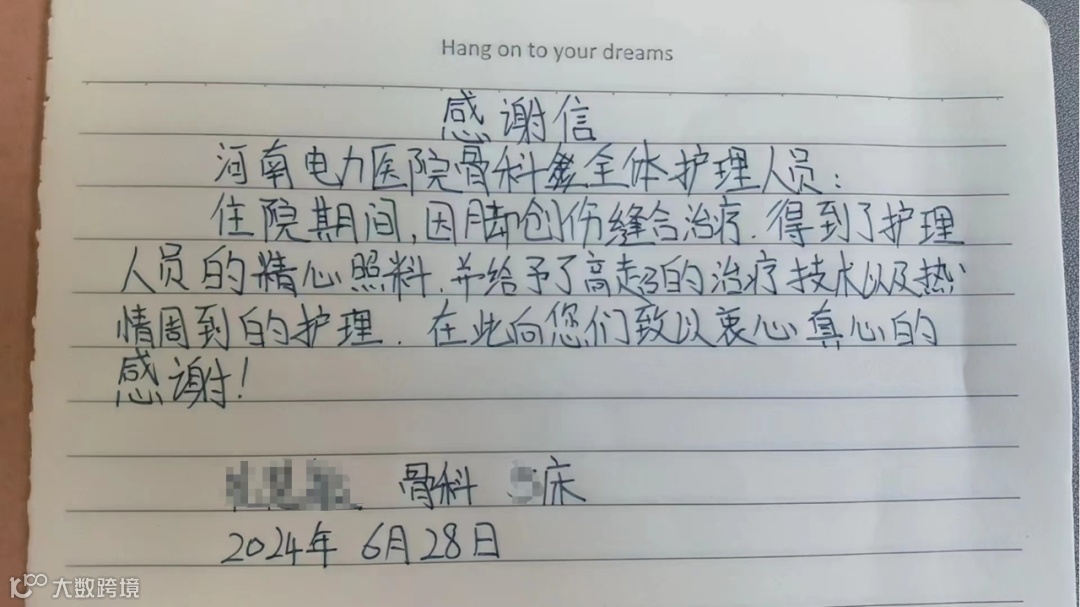 Hang on to your dreams
感谢信
河南电力医院骨科全体护理人员：
住院期间，因脚创伤缝合治疗．得到了护理
人员的精心照料．并给予了高超的治疗技术以及热
情周到的护理．在此向您们致以衷心真心的
感谢！
骨科 床
2024年 6月28日
大数跨境